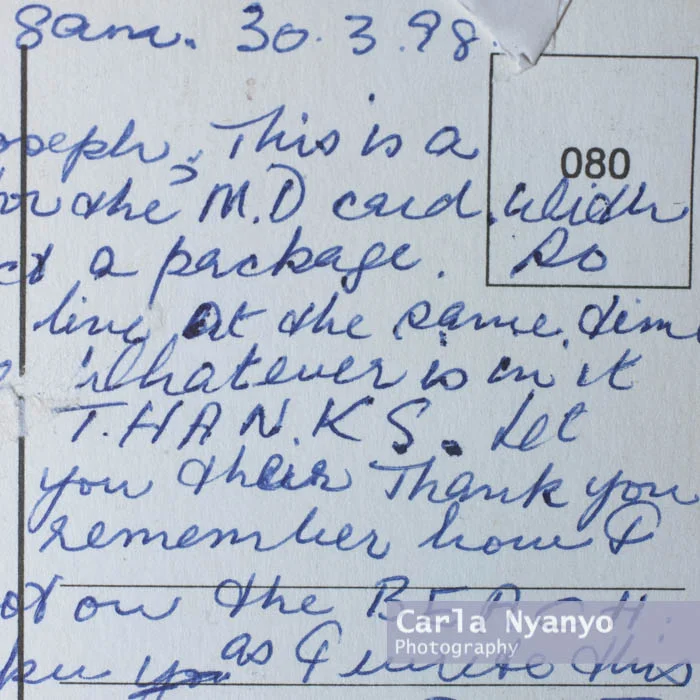 30.3.98.
oseph, This is a
080
or the M.D card. Width
ct a package. So
line at the same. time
Whatever is in it
T.H.A.N.K.S. Let
you their Thank you
remember how I
ot on the BEACH.
as I write this
Carla Nyanyo
Photography